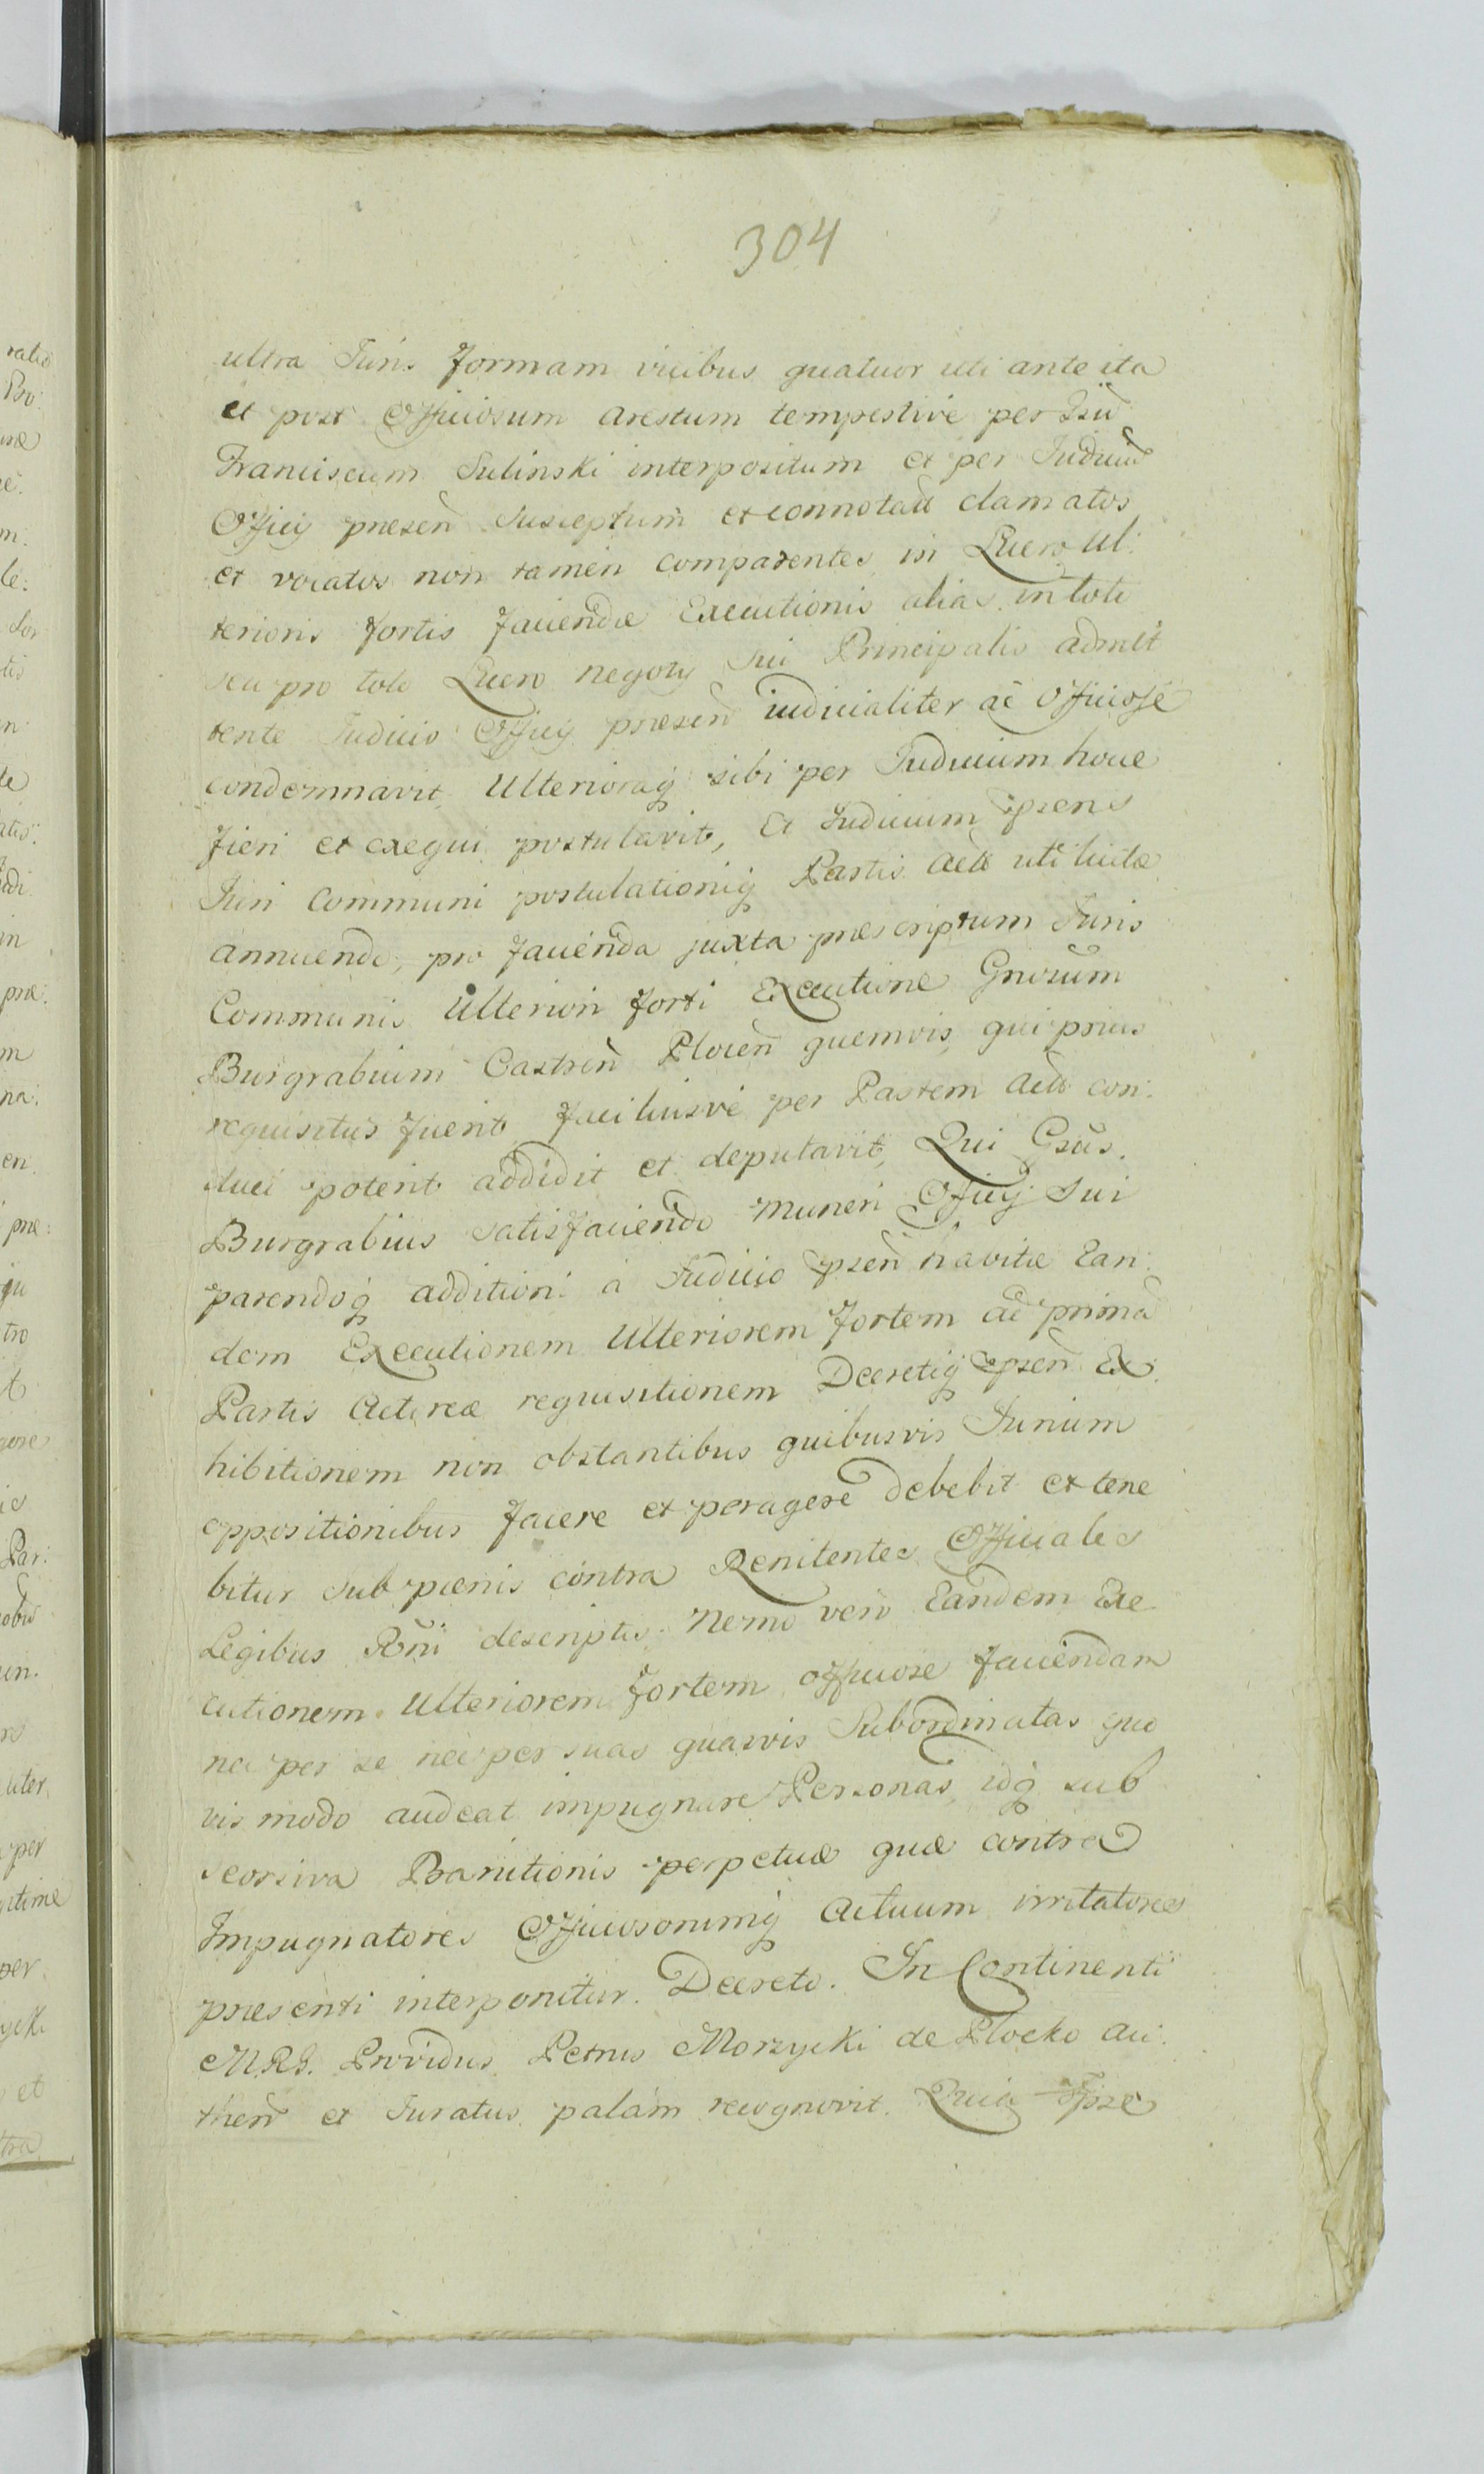 304
ultra Juris formam vicibus quatuor uti ante ita
et post Officiosum arestum tempestive per Gsũ
Franciscum Sulinski interpositum et per Judiciũ
Officÿ præseñ susceptum et connotatũ clamatos
et vocatos non tamen comparentes in Lucro Ul:
terioris fortis faciendæ Executionis alias in toto
seu pro toto Lucro negotÿ sui Principalis admit
tente Judicio Officÿ præseñ iudicialiter ac officiose
condemnavit, Ulterioraq̃ sibi per Judicium hocce
fieri et exequi postulavit, Et Judicium psens
Juri Communi postulationiq̃ Partis Actæ uti licitæ
annuendo, pro facienda juxta præscriptum Juris
Communis Ulteriori forti Executione Gnosum
Burgrabium Castreñ Plocen̄ quemvis, qui prius
requisitus fuerit faciliusve per Partem Actã con:
duci poterit addidit et deputavit, Qui Gsũs.
Burgrabius satisfaciendo muneri Officÿ sui
parendoq̃ additioni a Judicio pseñ navitæ Ean:
dem Executionem Ulteriorem fortem ad primã
Partis Actoreæ requisitionem Decretiq̃ pseñ Ex:
hibitionem non obstantibus quibusvis Jurium
oppositionibus facere et peragere debebit et tene
bitur sub pœnis contra Renitentes Officiales
Legibus Rñi descriptis. Nemo vero Eandem Exe
cutionem Ulteriorem fortem officiose faciendam
nec per se nec per suas quasvis Subordinatas quo
vis modo audeat impugnare Personas, idq̃ sub
seorsiva Banitionis perpetuæ quæ contra
Impugnatores Officiosorumq̃ Actuum irritatores
præsenti interponitur Decreto. In Continenti
M.R.G. Providus Petrus Morzycki de Plocko au:
then̄ et Juratus palam recognovit. Quia Ipse